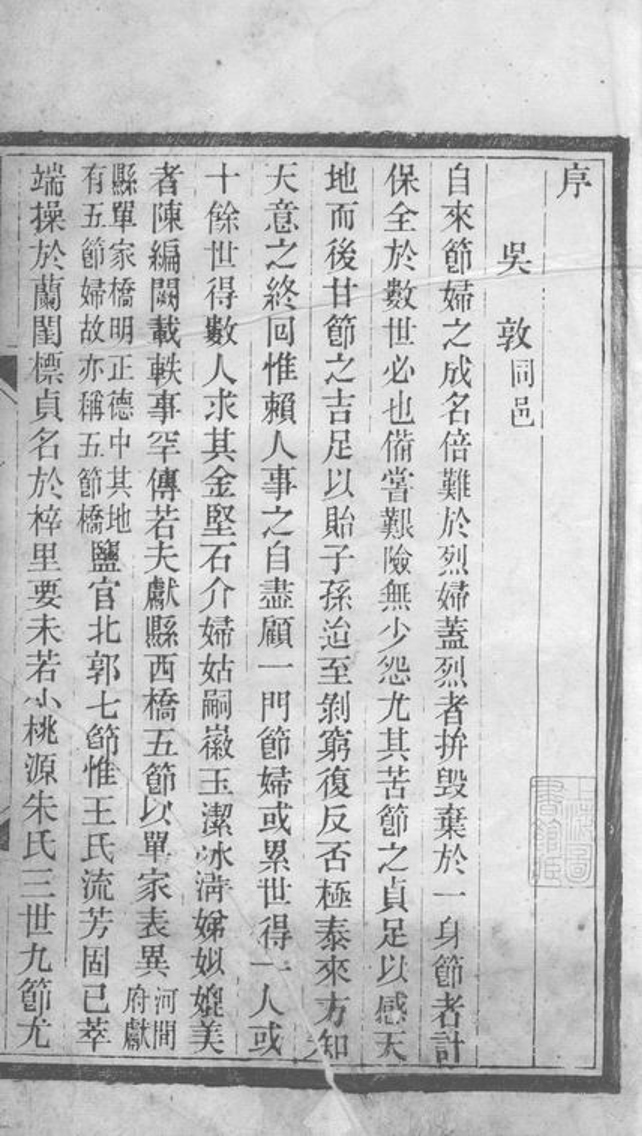 序
吳敦同邑
自來節婦之成名倍難於烈婦蓋烈者拚毀棄於一身節者計
保全於數世必也備嘗艱險無少怨尤其苦節之貞足以感天
地而後甘節之吉足以貽子孫迨至剝窮復反否極泰來方知
天意之終回惟賴人事之自盡顧一門節婦或累世得一人或
十餘世得數人求其金堅石介婦姑嗣徽玉潔冰淸娣姒媲美
者陳編闕載軼事罕傳若夫獻縣西橋五節以單家表異河間府獻
縣單家橋明正德中其地有五節婦故亦稱五節橋鹽官北郭七節惟王氏流芳固已萃
端操於蘭閨標貞名於梓里要未若小桃源朱氏三世九節尤
上海圖書館藏